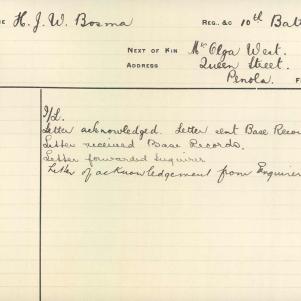 H. J. W. Bosma
REG. &C 10th Batt
NEXT OF KIN Mrs Olga West.
ADDRESS Queen Street.
Penola.
I/L.
Letter acknowledged. Letter sent Base Reco
Letter received Base Records.
Letter forwarded Inquirer
Letter of acknowledgement from Enquirer